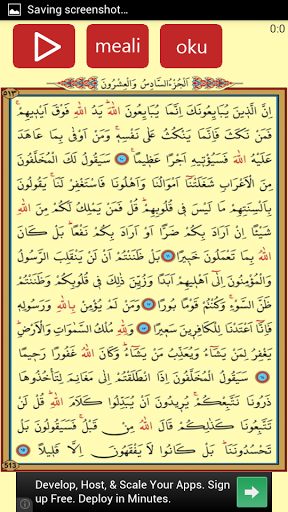 Saving screenshot...
meali
oku
0:0
٥١٣
اَلْجُزْءُ السَّادِسُ وَالْعِشْرُونَ
اِنَّ الَّذ۪ينَ يُبَايِعُونَكَ اِنَّمَا يُبَايِعُونَ اللّٰهَۜ يَدُ اللّٰهِ فَوْقَ اَيْد۪يهِمْۚ
فَمَنْ نَكَثَ فَاِنَّمَا يَنْكُثُ عَلٰى نَفْسِه۪ۚ وَمَنْ اَوْفٰى بِمَا عَاهَدَ
عَلَيْهُ اللّٰهَ فَسَيُؤْت۪يهِ اَجْرًا عَظ۪يمًا۟ سَيَقُولُ لَكَ الْمُخَلَّفُونَ
مِنَ الْاَعْرَابِ شَغَلَتْنَٓا اَمْوَالُنَا وَاَهْلُونَا فَاسْتَغْفِرْ لَنَاۚ يَقُولُونَ
بِاَلْسِنَتِهِمْ مَا لَيْسَ ف۪ي قُلُوبِهِمْۜ قُلْ فَمَنْ يَمْلِكُ لَكُمْ مِنَ اللّٰهِ
شَيْـًٔا اِنْ اَرَادَ بِكُمْ ضَرًّا اَوْ اَرَادَ بِكُمْ نَفْعًاۜ بَلْ كَانَ
اللّٰهُ بِمَا تَعْمَلُونَ خَب۪يرًا بَلْ ظَنَنْتُمْ اَنْ لَنْ يَنْقَلِبَ الرَّسُولُ
وَالْمُؤْمِنُونَ اِلٰٓى اَهْل۪يهِمْ اَبَدًا وَزُيِّنَ ذٰلِكَ ف۪ي قُلُوبِكُمْ وَظَنَنْتُمْ
ظَنَّ السَّوْءِۚ وَكُنْتُمْ قَوْمًا بُورًا وَمَنْ لَمْ يُؤْمِنْ بِاللّٰهِ وَرَسُولِه۪
فَاِنَّٓا اَعْتَدْنَا لِلْكَافِر۪ينَ سَع۪يرًا وَلِلّٰهِ مُلْكُ السَّمٰوَاتِ وَالْاَرْضِۜ
يَغْفِرُ لِمَنْ يَشَٓاءُ وَيُعَذِّبُ مَنْ يَشَٓاءُۜ وَكَانَ اللّٰهُ غَفُورًا رَح۪يمًا
سَيَقُولُ الْمُخَلَّفُونَ اِذَا انْطَلَقْتُمْ اِلٰى مَغَانِمَ لِتَأْخُذُوهَا
ذَرُونَا نَتَّبِعْكُمْۚ يُر۪يدُونَ اَنْ يُبَدِّلُوا كَلَامَ اللّٰهِۜ قُلْ لَنْ
تَتَّبِعُونَا كَذٰلِكُمْ قَالَ اللّٰهُ مِنْ قَبْلُۚ فَسَيَقُولُونَ بَلْ
تَحْسُدُونَنَاۜ بَلْ كَانُوا لَا يَفْقَهُونَ اِلَّا قَل۪يلًا
513
Develop, Host, & Scale Your Apps. Sign
up Free. Deploy in Minutes.